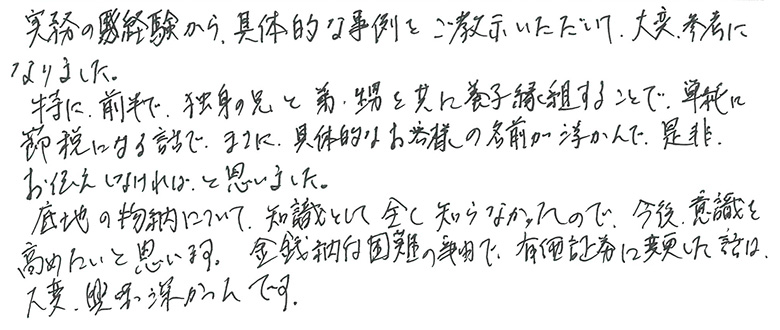 実務の経験から、具体的な事例をご教示いただいて、大変、参考に
なりました。
特に、前半で、独身の兄と弟・甥を共に養子縁組することで、単純に
節税になる話で、まさに、具体的なお客様の名前が浮かんで、是非、
お伝えしなければ、と思いました。
底地の物納について、知識として全く知らなかったので、今後、意識を
高めたいと思います。金銭納付困難の事由で、有価証券に変更した話は、
大変、興味深かったです。